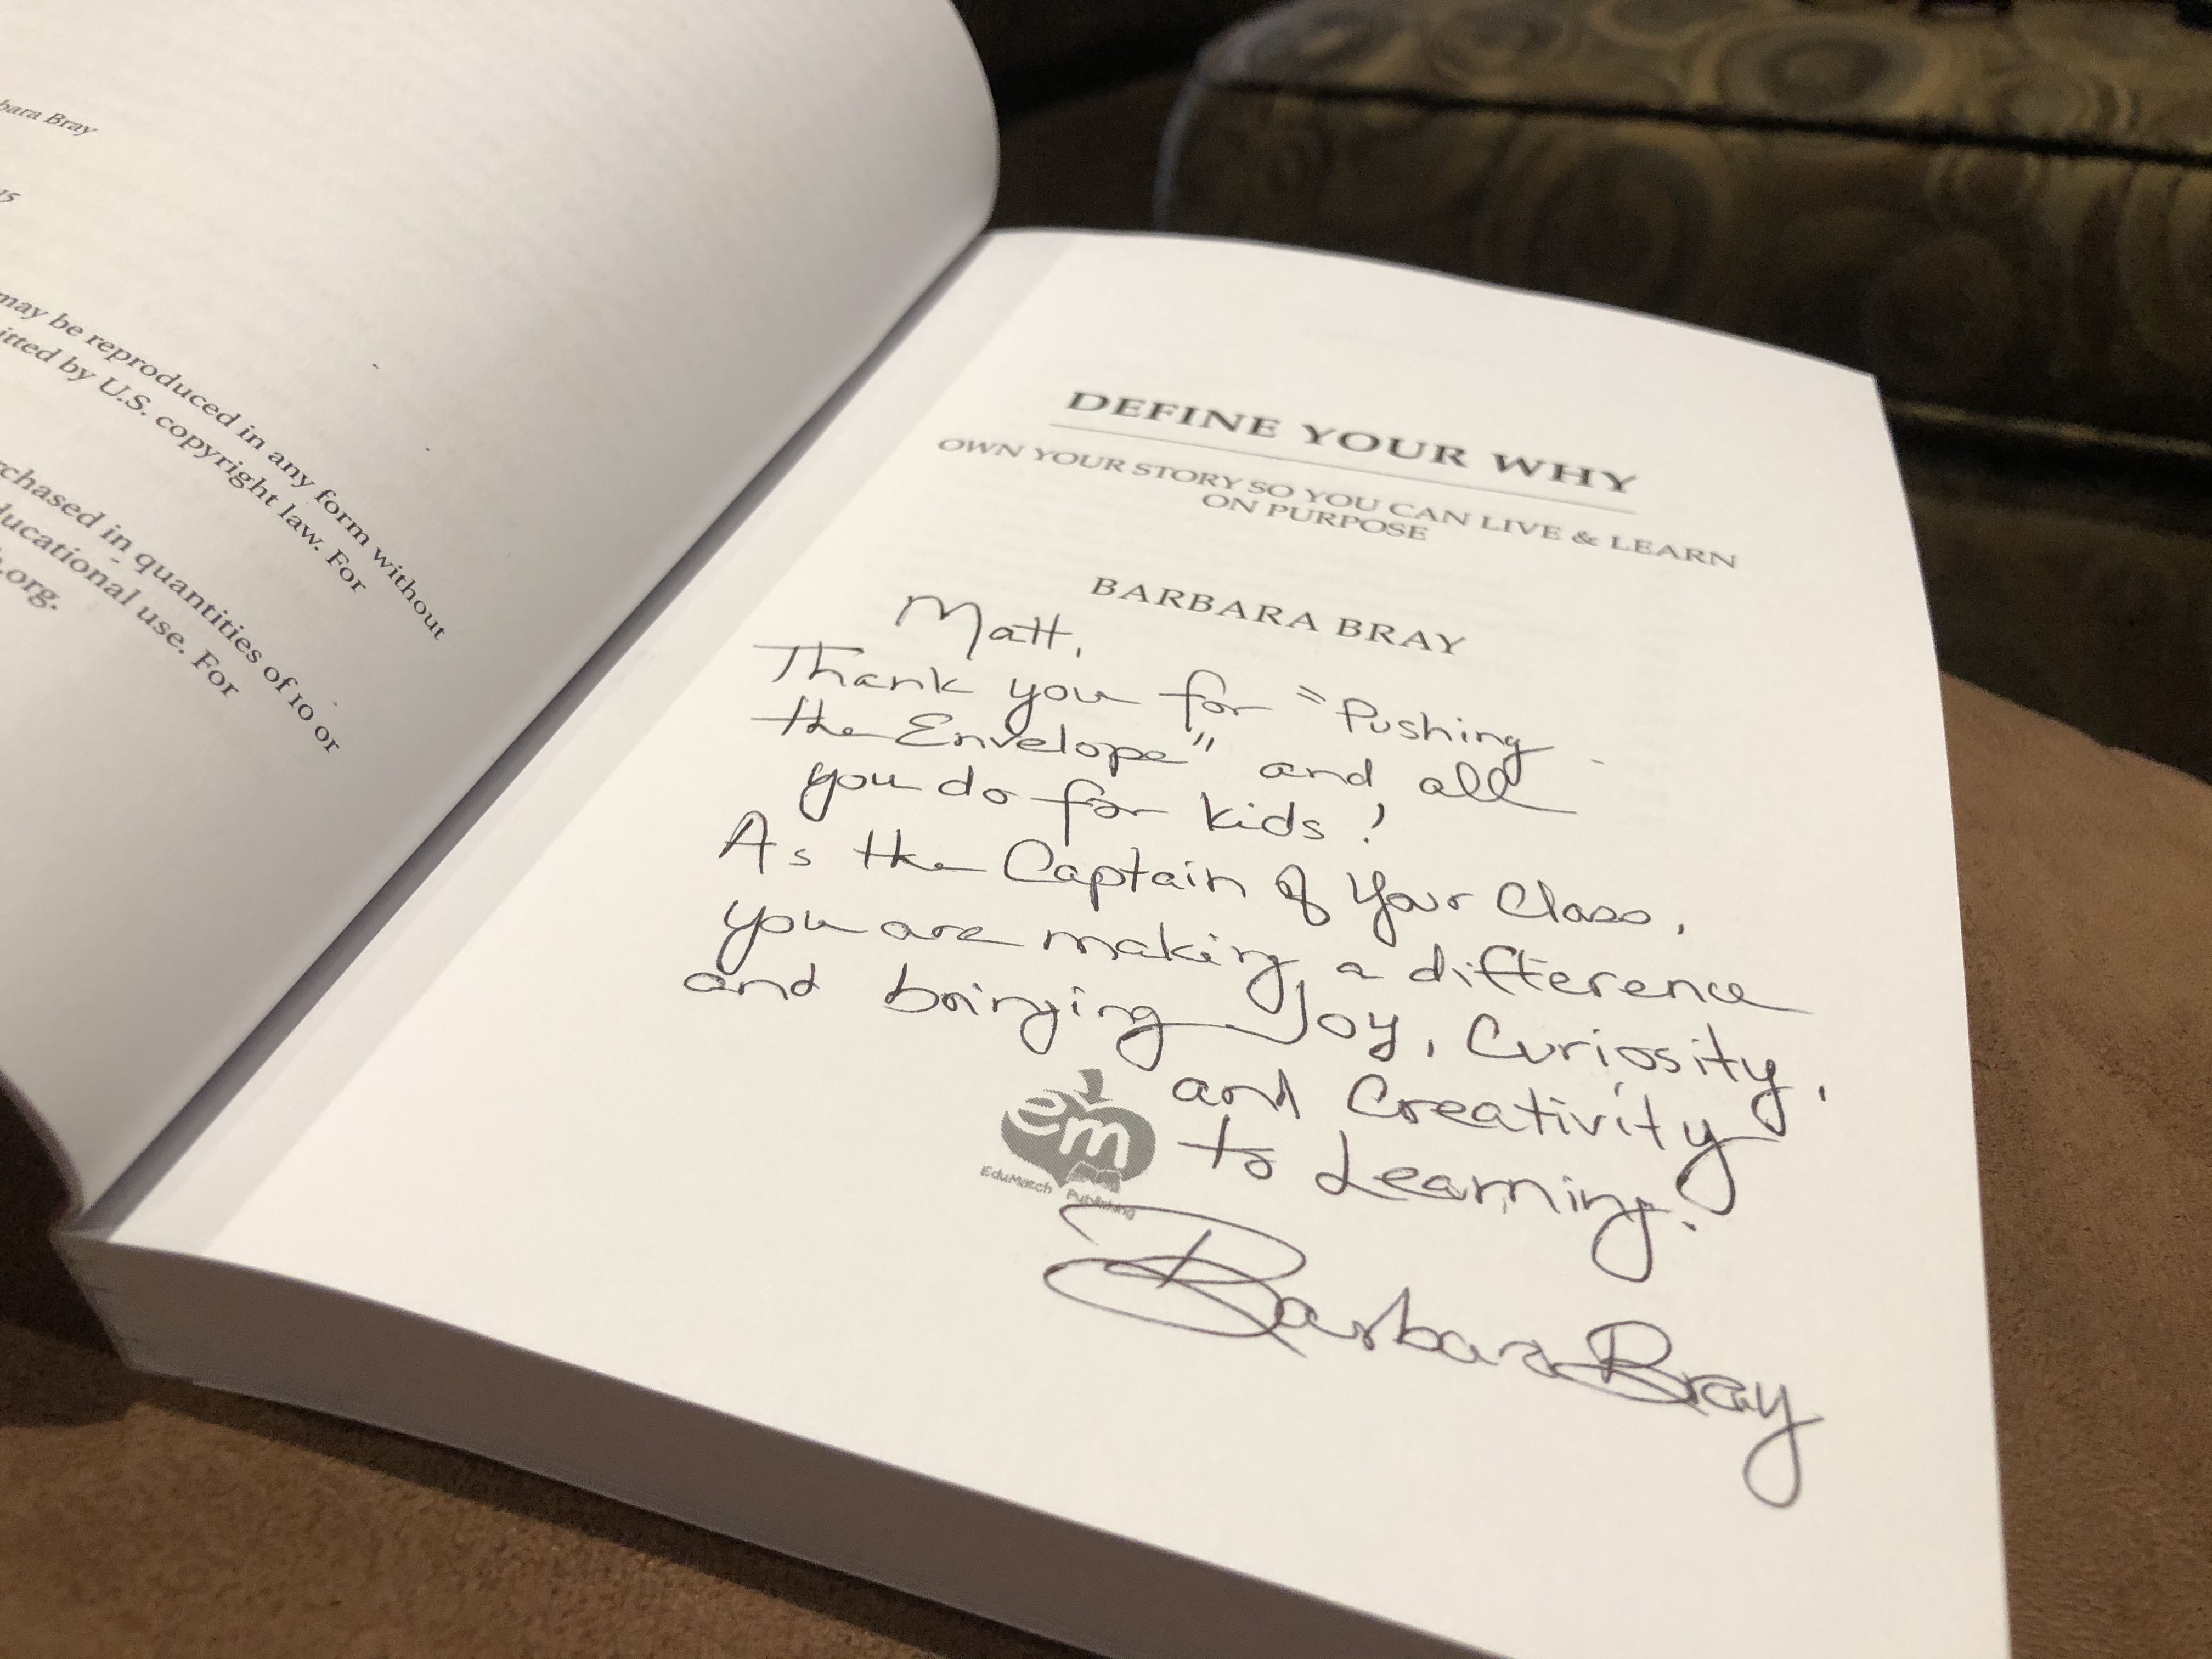 bara Bray
15
may be reproduced in any form without
itted by U.S. copyright law. For
rchased in quantities of 10 or
ducational use. For
.org.
DEFINE YOUR WHY
OWN YOUR STORY SO YOU CAN LIVE & LEARN
ON PURPOSE
BARBARA BRAY
Matt,
Thank you for "Pushing
the Envelope" and all
you do for kids!
As the Captain of Your Class,
you are making a difference
and bringing Joy, Curiosity,
and Creativity
to Learning.
em
EduMatch Publishing
Barbara Bray